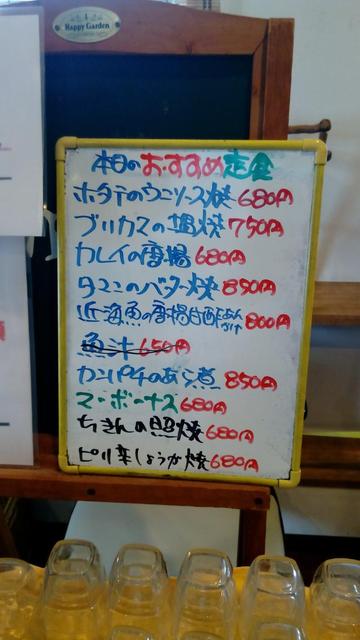 Happy Garden
本日のおすすめ定食
ホタテのウニソース焼680円
ブリカマの塩焼750円
カレイの唐揚680円
タマンのバター焼850円
近海魚の唐揚甘酢あんかけ800円
魚汁650円
カンパチのあら煮850円
マーボーナス680円
ちきんの照焼680円
ピリ辛しょうが焼680円